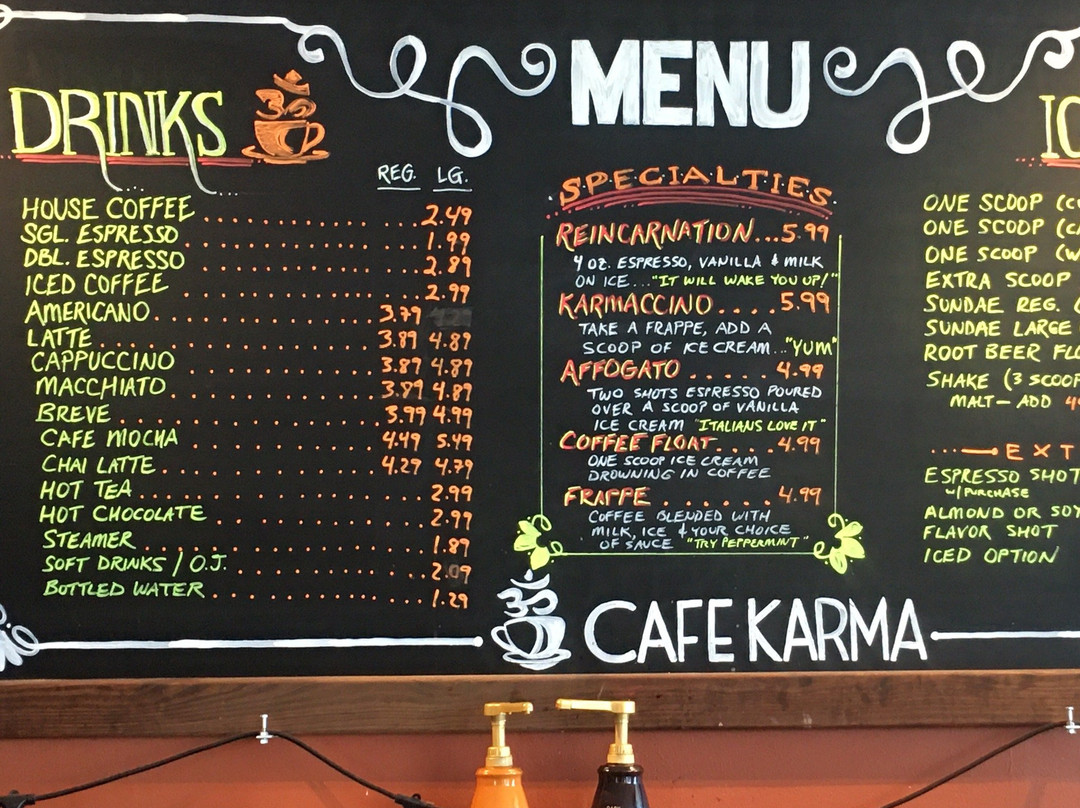 MENU
DRINKS
REG. LG.
HOUSE COFFEE 2.49
SGL. ESPRESSO 1.99
DBL. ESPRESSO 2.89
ICED COFFEE 2.99
AMERICANO 3.79
LATTE 3.89 4.89
CAPPUCCINO 3.89 4.89
MACCHIATO 3.89 4.89
BREVE 3.99 4.99
CAFE MOCHA 4.49 5.49
CHAI LATTE 4.29 4.79
HOT TEA 2.99
HOT CHOCOLATE 2.99
STEAMER 1.89
SOFT DRINKS / O.J. 2.09
BOTTLED WATER 1.29
SPECIALTIES
REINCARNATION...5.99
4 OZ. ESPRESSO, VANILLA & MILK
ON ICE..."IT WILL WAKE YOU UP!"
KARMACCINO....5.99
TAKE A FRAPPE, ADD A
SCOOP OF ICE CREAM..."YUM"
AFFOGATO.....4.99
TWO SHOTS ESPRESSO POURED
OVER A SCOOP OF VANILLA
ICE CREAM "ITALIANS LOVE IT"
COFFEE FLOAT....4.99
ONE SCOOP ICE CREAM
DROWNING IN COFFEE
FRAPPE.......4.99
COFFEE BLENDED WITH
MILK, ICE & YOUR CHOICE
OF SAUCE "TRY PEPPERMINT"
IC
ONE SCOOP (C
ONE SCOOP (C
ONE SCOOP (W
EXTRA SCOOP
SUNDAE REG. (
SUNDAE LARGE
ROOT BEER FLO
SHAKE (3 SCOOP
MALT - ADD
EXT
ESPRESSO SHOT
W/ PURCHASE
ALMOND OR SOY
FLAVOR SHOT
ICED OPTION
CAFE KARMA